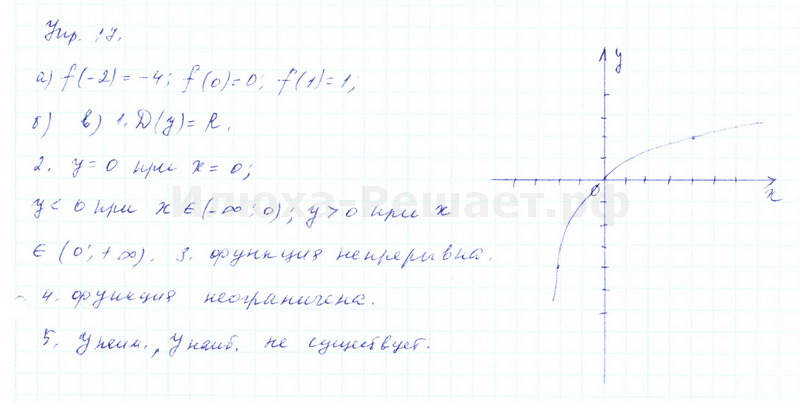 Упр. 17.
а) f(-2) = -4; f(0)=0; f(1)=1;
б) в) 1. D(y)=R.
2. y=0 при x=0;
y<0 при x∈(-∞;0); y>0 при x
∈ (0;+∞). 3. функция непрерывна.
4. функция неограничена.
5. yнаим., yнаиб. не существует.
y
0
x
Илюха-Решает.рф